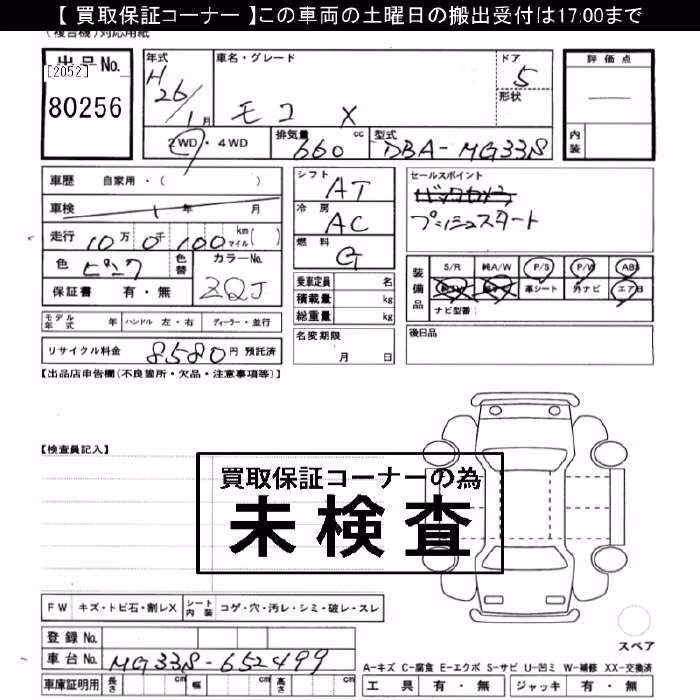 【 買取保証コーナー 】この車両の土曜日の搬出受付は17:00まで
(複合機)対応用紙
出品No.
[2052]
80256
年式
H 26 / 1月
車名・グレード
モコ X
ドア
5
形状
評価点
内装
2WD・4WD
排気量 cc
660
型式
DBA-MG33S
車歴 自家用・( )
車検 年 月
走行 10万 0千 100 km マイル ( )
色
ピンク
色替
カラーNo.
ZQJ
保証書 有・無
モデル年式 年 ハンドル 左・右 ディーラー・並行
リサイクル料金 8580円 預託済
シフト
AT
冷房
AC
燃料
G
乗車定員 名
積載量 kg
総重量 kg
名変期限
月 日
セールスポイント
バックカメラ
プッシュスタート
装備品
S/R 純A/W P/S P/W ABS
革シート 外ナビ エアB
ナビ型番:
後日品
【出品店申告欄(不良箇所・欠品・注意事項等)】
【検査員記入】
買取保証コーナーの為
未検査
FW キズ・トビ石・割レX シート内装 コゲ・穴・汚レ・シミ・破レ・スレ
登録No.
車台No. MG33S-652499
車庫証明用 長さ cm 幅 cm 高さ cm
スペア
A-キズ C-腐食 E-エクボ S-サビ U-凹ミ W-補修 XX-交換済
工具 有・無 ジャッキ 有・無